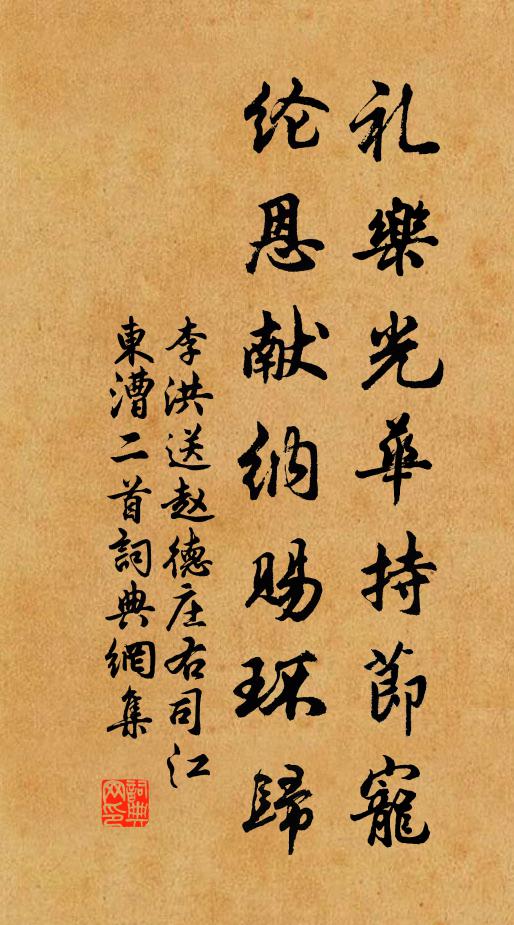 礼樂光华持節寵
纶恩献纳赐环歸
李洪送赵德庄右司江
東漕二首詞典網集
詞典網印